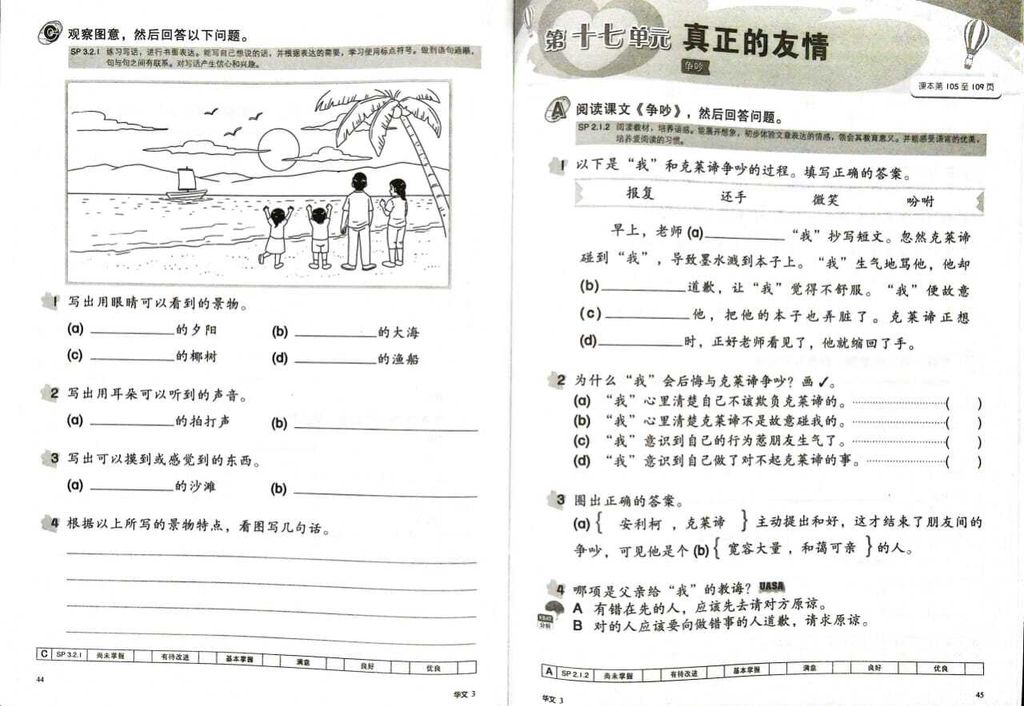 C 观察图意，然后回答以下问题。
SP 3.2.1 练习写话，进行书面表达。能写自己想说的话，并根据表达的需要，学习使用标点符号。做到语句通顺，
句与句之间有联系。对写话产生信心和兴趣。
1 写出用眼睛可以看到的景物。
(a) ________的夕阳 (b) ________的大海
(c) ________的椰树 (d) ________的渔船
2 写出用耳朵可以听到的声音。
(a) ________的拍打声 (b) ________
3 写出可以摸到或感觉到的东西。
(a) ________的沙滩 (b) ________
4 根据以上所写的景物特点，看图写几句话。
C SP 3.2.1 尚未掌握 有待改进 基本掌握 满意 良好 优良
44
华文 3
第十七单元 真正的友情
争吵
课本第 105 至 109 页
A 阅读课文《争吵》，然后回答问题。
SP 2.1.2 阅读教材，培养语感。能展开想象，初步体验文章表达的情感，领会其教育意义。并能感受语言的优美，
培养爱阅读的习惯。
1 以下是“我”和克莱谛争吵的过程。填写正确的答案。
报复 还手 微笑 吩咐
早上，老师 (a)________ “我”抄写短文。忽然克莱谛
碰到“我”，导致墨水溅到本子上。“我”生气地骂他，他却
(b)________道歉，让“我”觉得不舒服。“我”便故意
(c)________他，把他的本子也弄脏了。克莱谛正想
(d)________时，正好老师看见了，他就缩回了手。
2 为什么“我”会后悔与克莱谛争吵？画✓。
(a) “我”心里清楚自己不该欺负克莱谛的。………………( )
(b) “我”心里清楚克莱谛不是故意碰我的。………………( )
(c) “我”意识到自己的行为惹朋友生气了。………………( )
(d) “我”意识到自己做了对不起克莱谛的事。……………( )
3 圈出正确的答案。
(a) { 安利柯，克莱谛 } 主动提出和好，这才结束了朋友间的
争吵，可见他是个 (b) { 宽容大量，和蔼可亲 } 的人。
4 哪项是父亲给“我”的教诲？ UASA
A 有错在先的人，应该先去请对方原谅。
B 对的人应该要向做错事的人道歉，请求原谅。
A SP 2.1.2 尚未掌握 有待改进 基本掌握 满意 良好 优良
华文 3
45